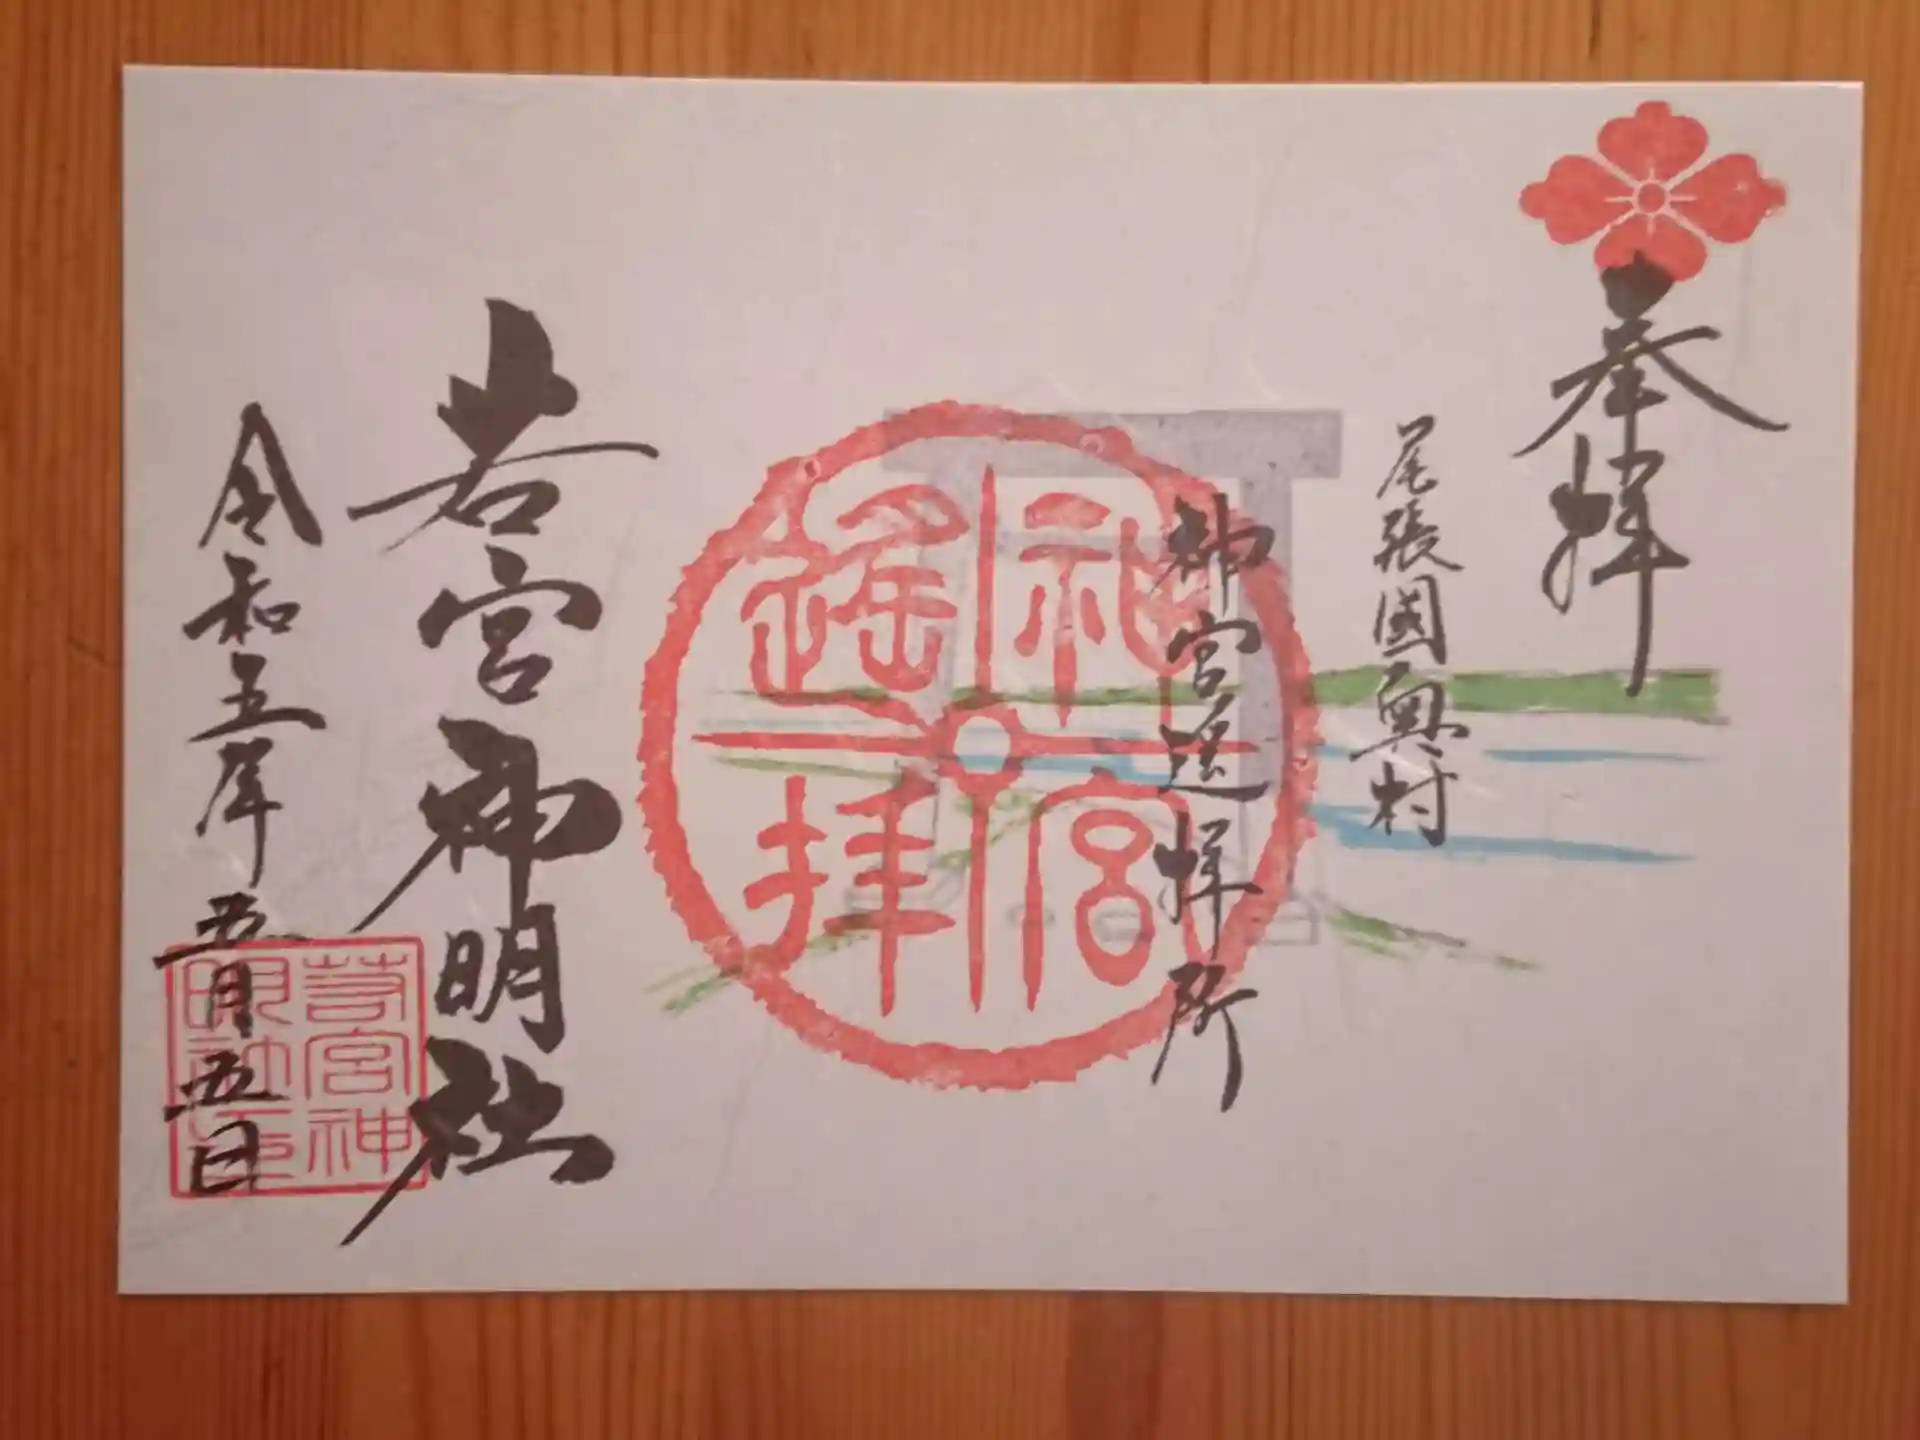 奉拝
尾張國奥村
神宮遥拝所
神宮遥拝
若宮神明社
令和五年五月五日
若宮神明社印